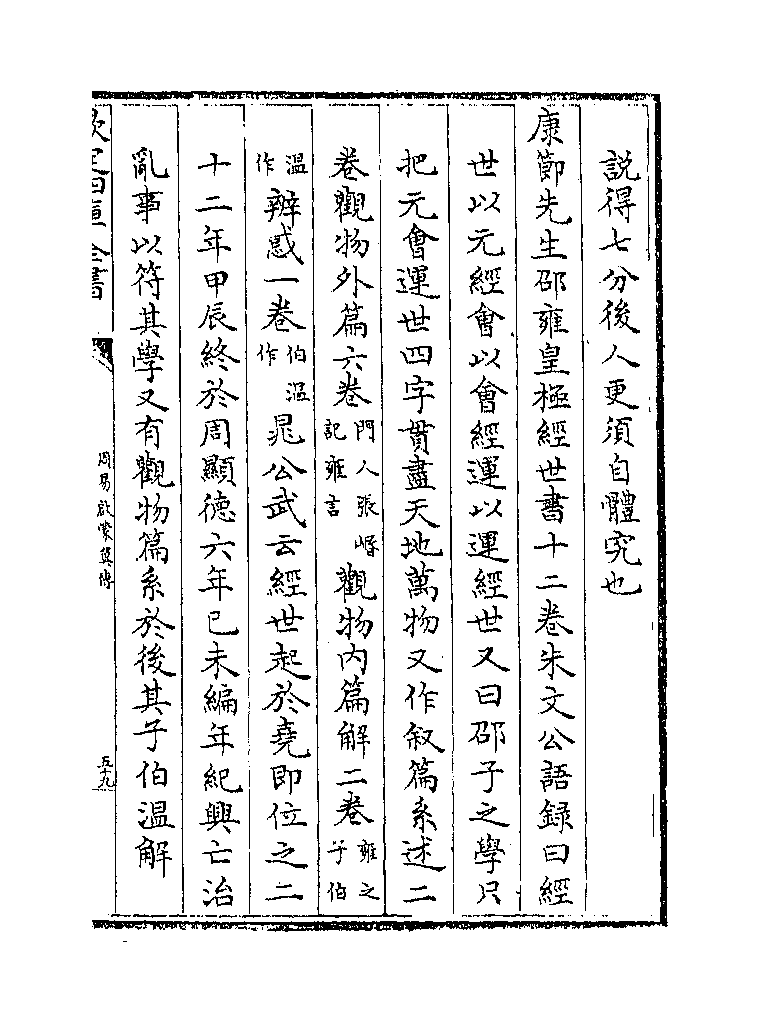 說得七分後人更須自體究也
康節先生邵雍皇極經世書十二卷朱文公語録曰經
世以元經會以會經運以運經世又曰邵子之學只
把元會運世四字貫盡天地萬物又作叙篇系述二
卷觀物外篇六卷門人張崏記雍言觀物内篇解二卷雍之子伯
温作辨惑一卷伯温作晁公武云經世起於堯即位之二
十二年甲辰終於周顯德六年已未編年紀興亡治
亂事以符其學又有觀物篇系於後其子伯温解
欽定四庫全書
周易啟蒙翼傳
五十九